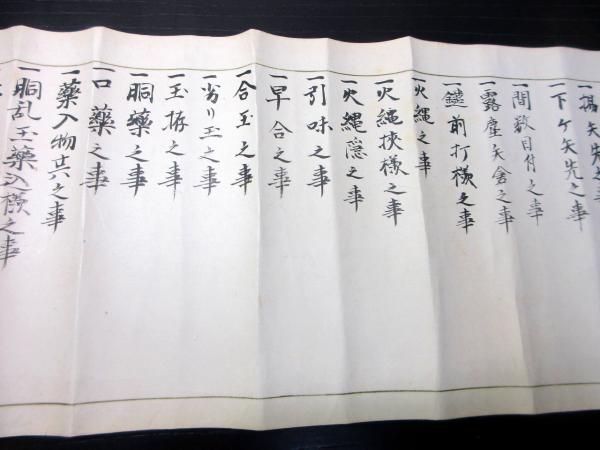 一揚矢先之事
一下ケ矢先之事
一間数目付之事
一露塵矢倉之事
一鑓前打様之事
一火縄之事
一火縄挾様之事
一火縄隠之事
一引味之事
一早合之事
一合玉之事
一劣リ玉之事
一玉拵之事
一胴藥之事
一口藥之事
一藥入物其六之事
一胴乱玉藥入様之事